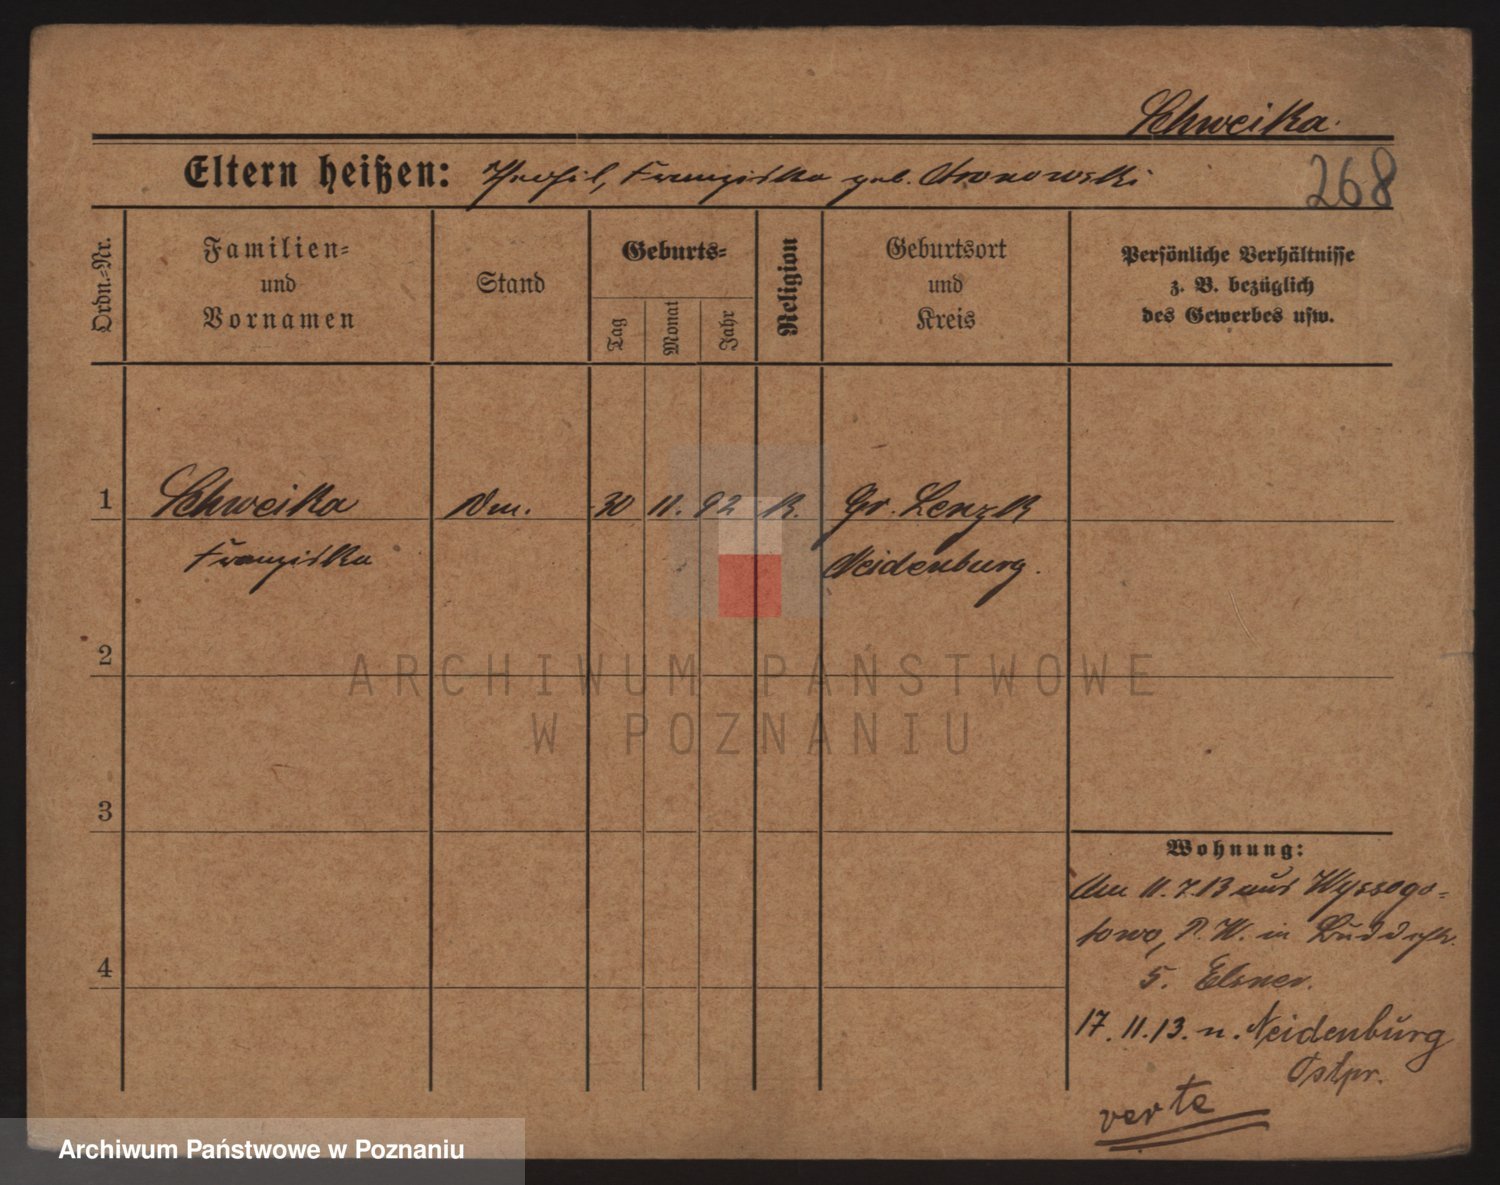 Schweika.
Eltern heißen: Franziska geb.
268
Ordn.-Nr.
Familien-
und
Vornamen
Stand
Geburts-
Tag
Monat
Jahr
Religion
Geburtsort
und
Kreis
Persönliche Verhältnisse
z. B. bezüglich
des Gewerbes usw.
1 Schweika 30 11. 92 K. Gr. Lenzk
Franziska Neidenburg.
2
ARCHIWUM PAŃSTWOWE
W POZNANIU
3
Wohnung:
Am 11.7.13 aus Wyssogo-
towo, P. W. in
4
5. Elsner.
17.11.13. n. Neidenburg
Ostpr.
verte
Archiwum Państwowe w Poznaniu